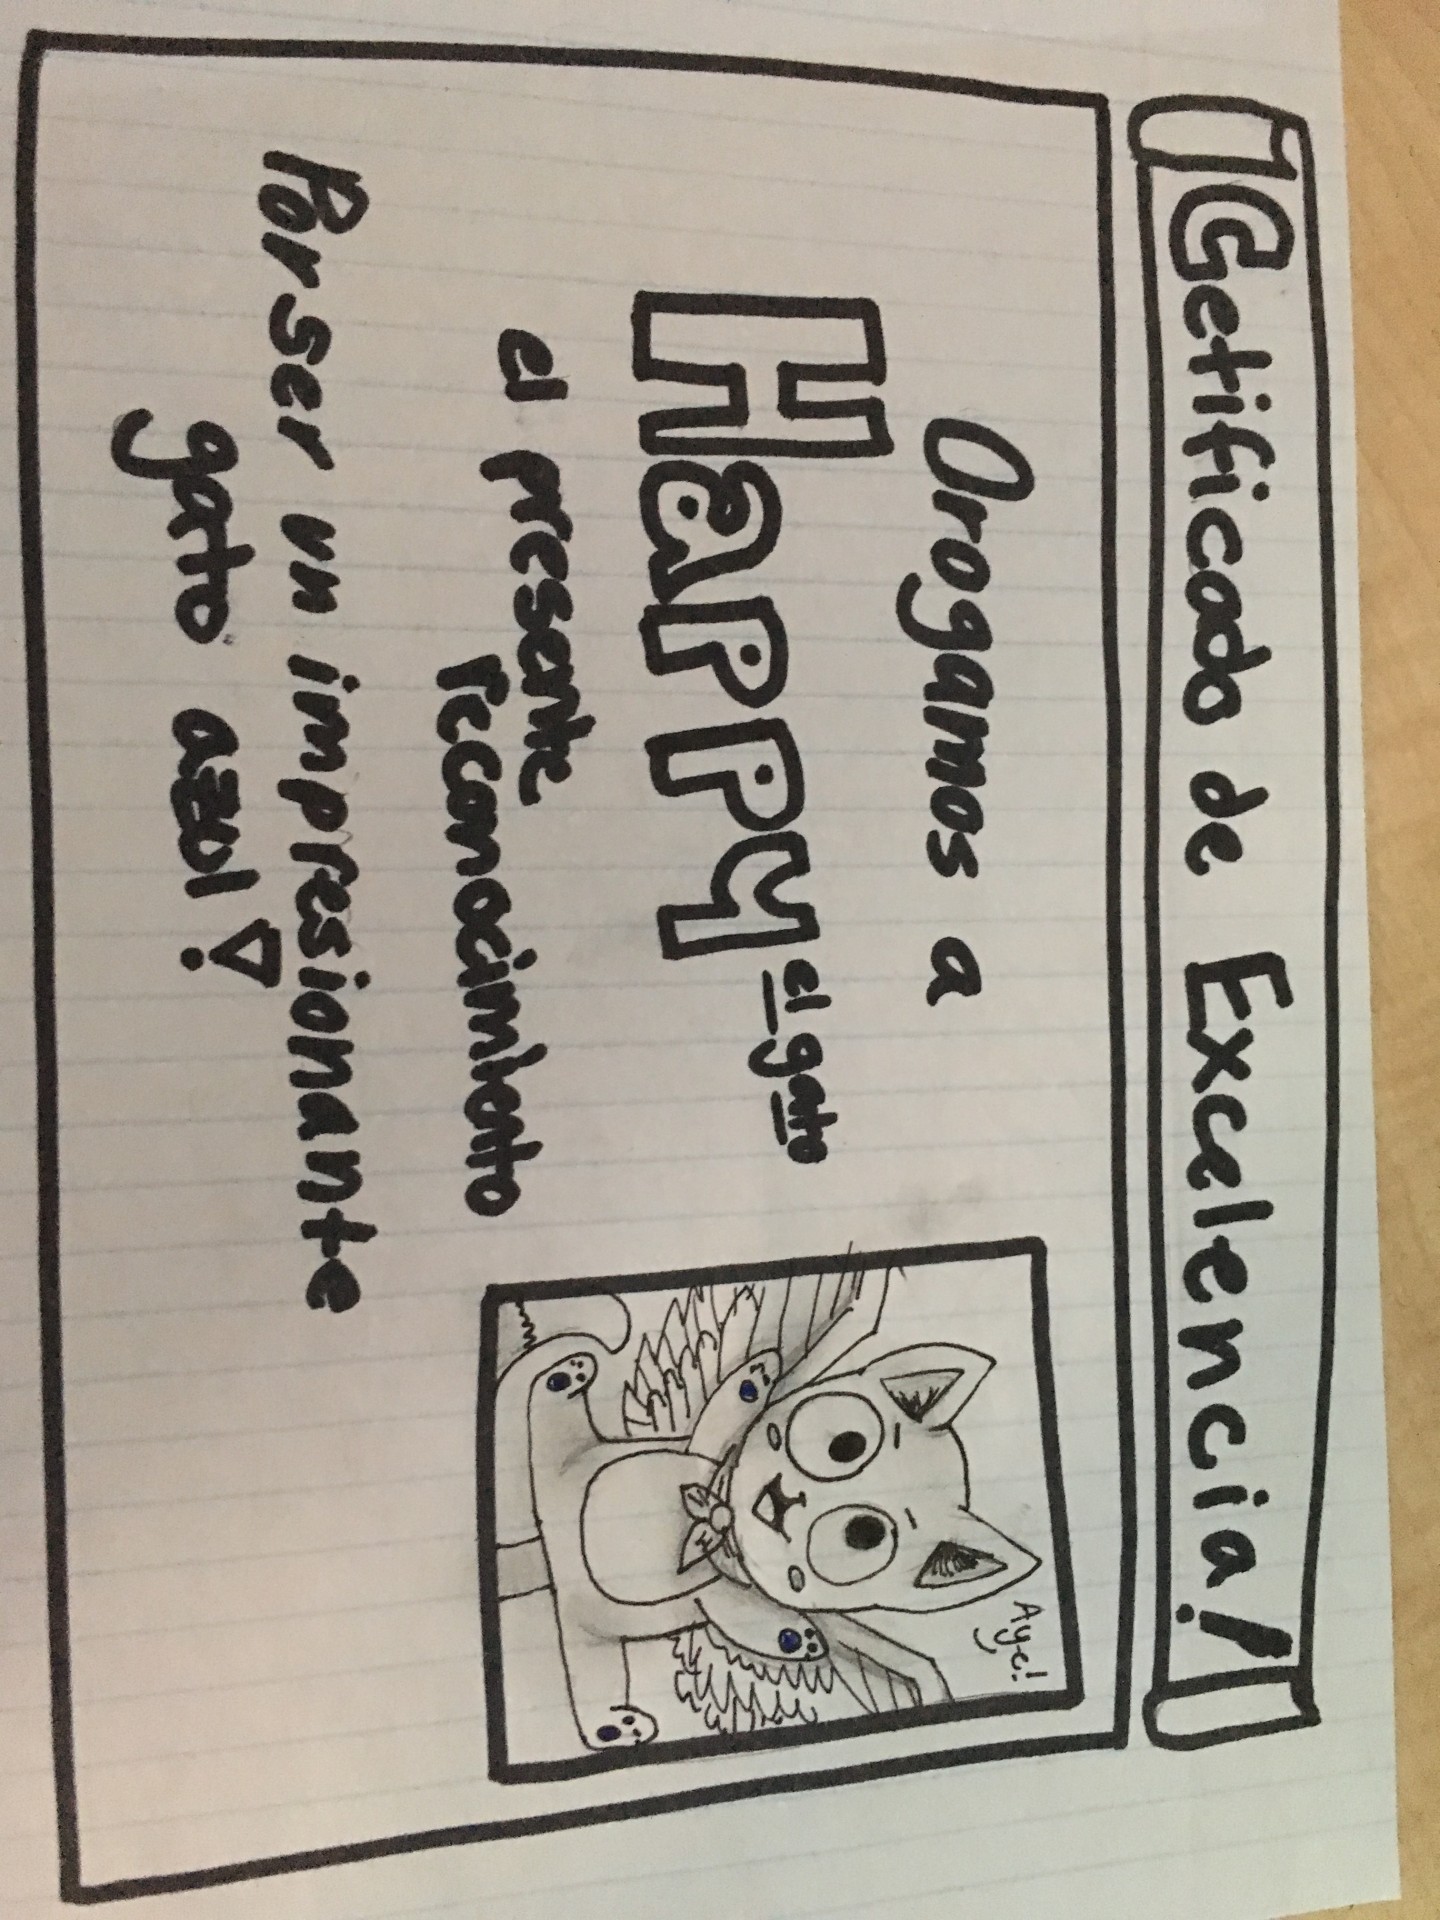 Cetificado de Excelencia!
Orogamos a
Happy el gato
el presente
reconocimiento
Por ser un impresionante
gato azul!
Aye!